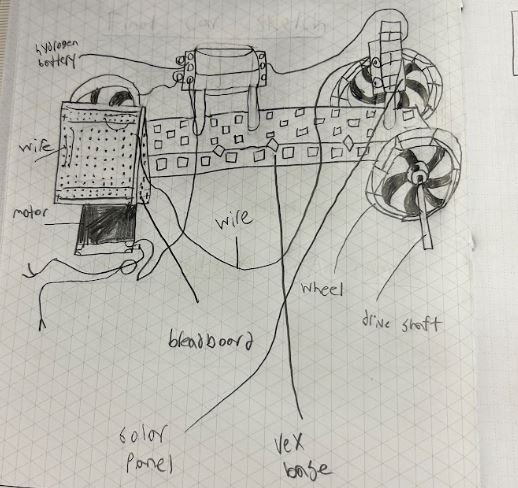 Final Car Sketch
hydrogen
battery
wire
motor
wire
wheel
drive shaft
breadboard
solar
panel
vex
base